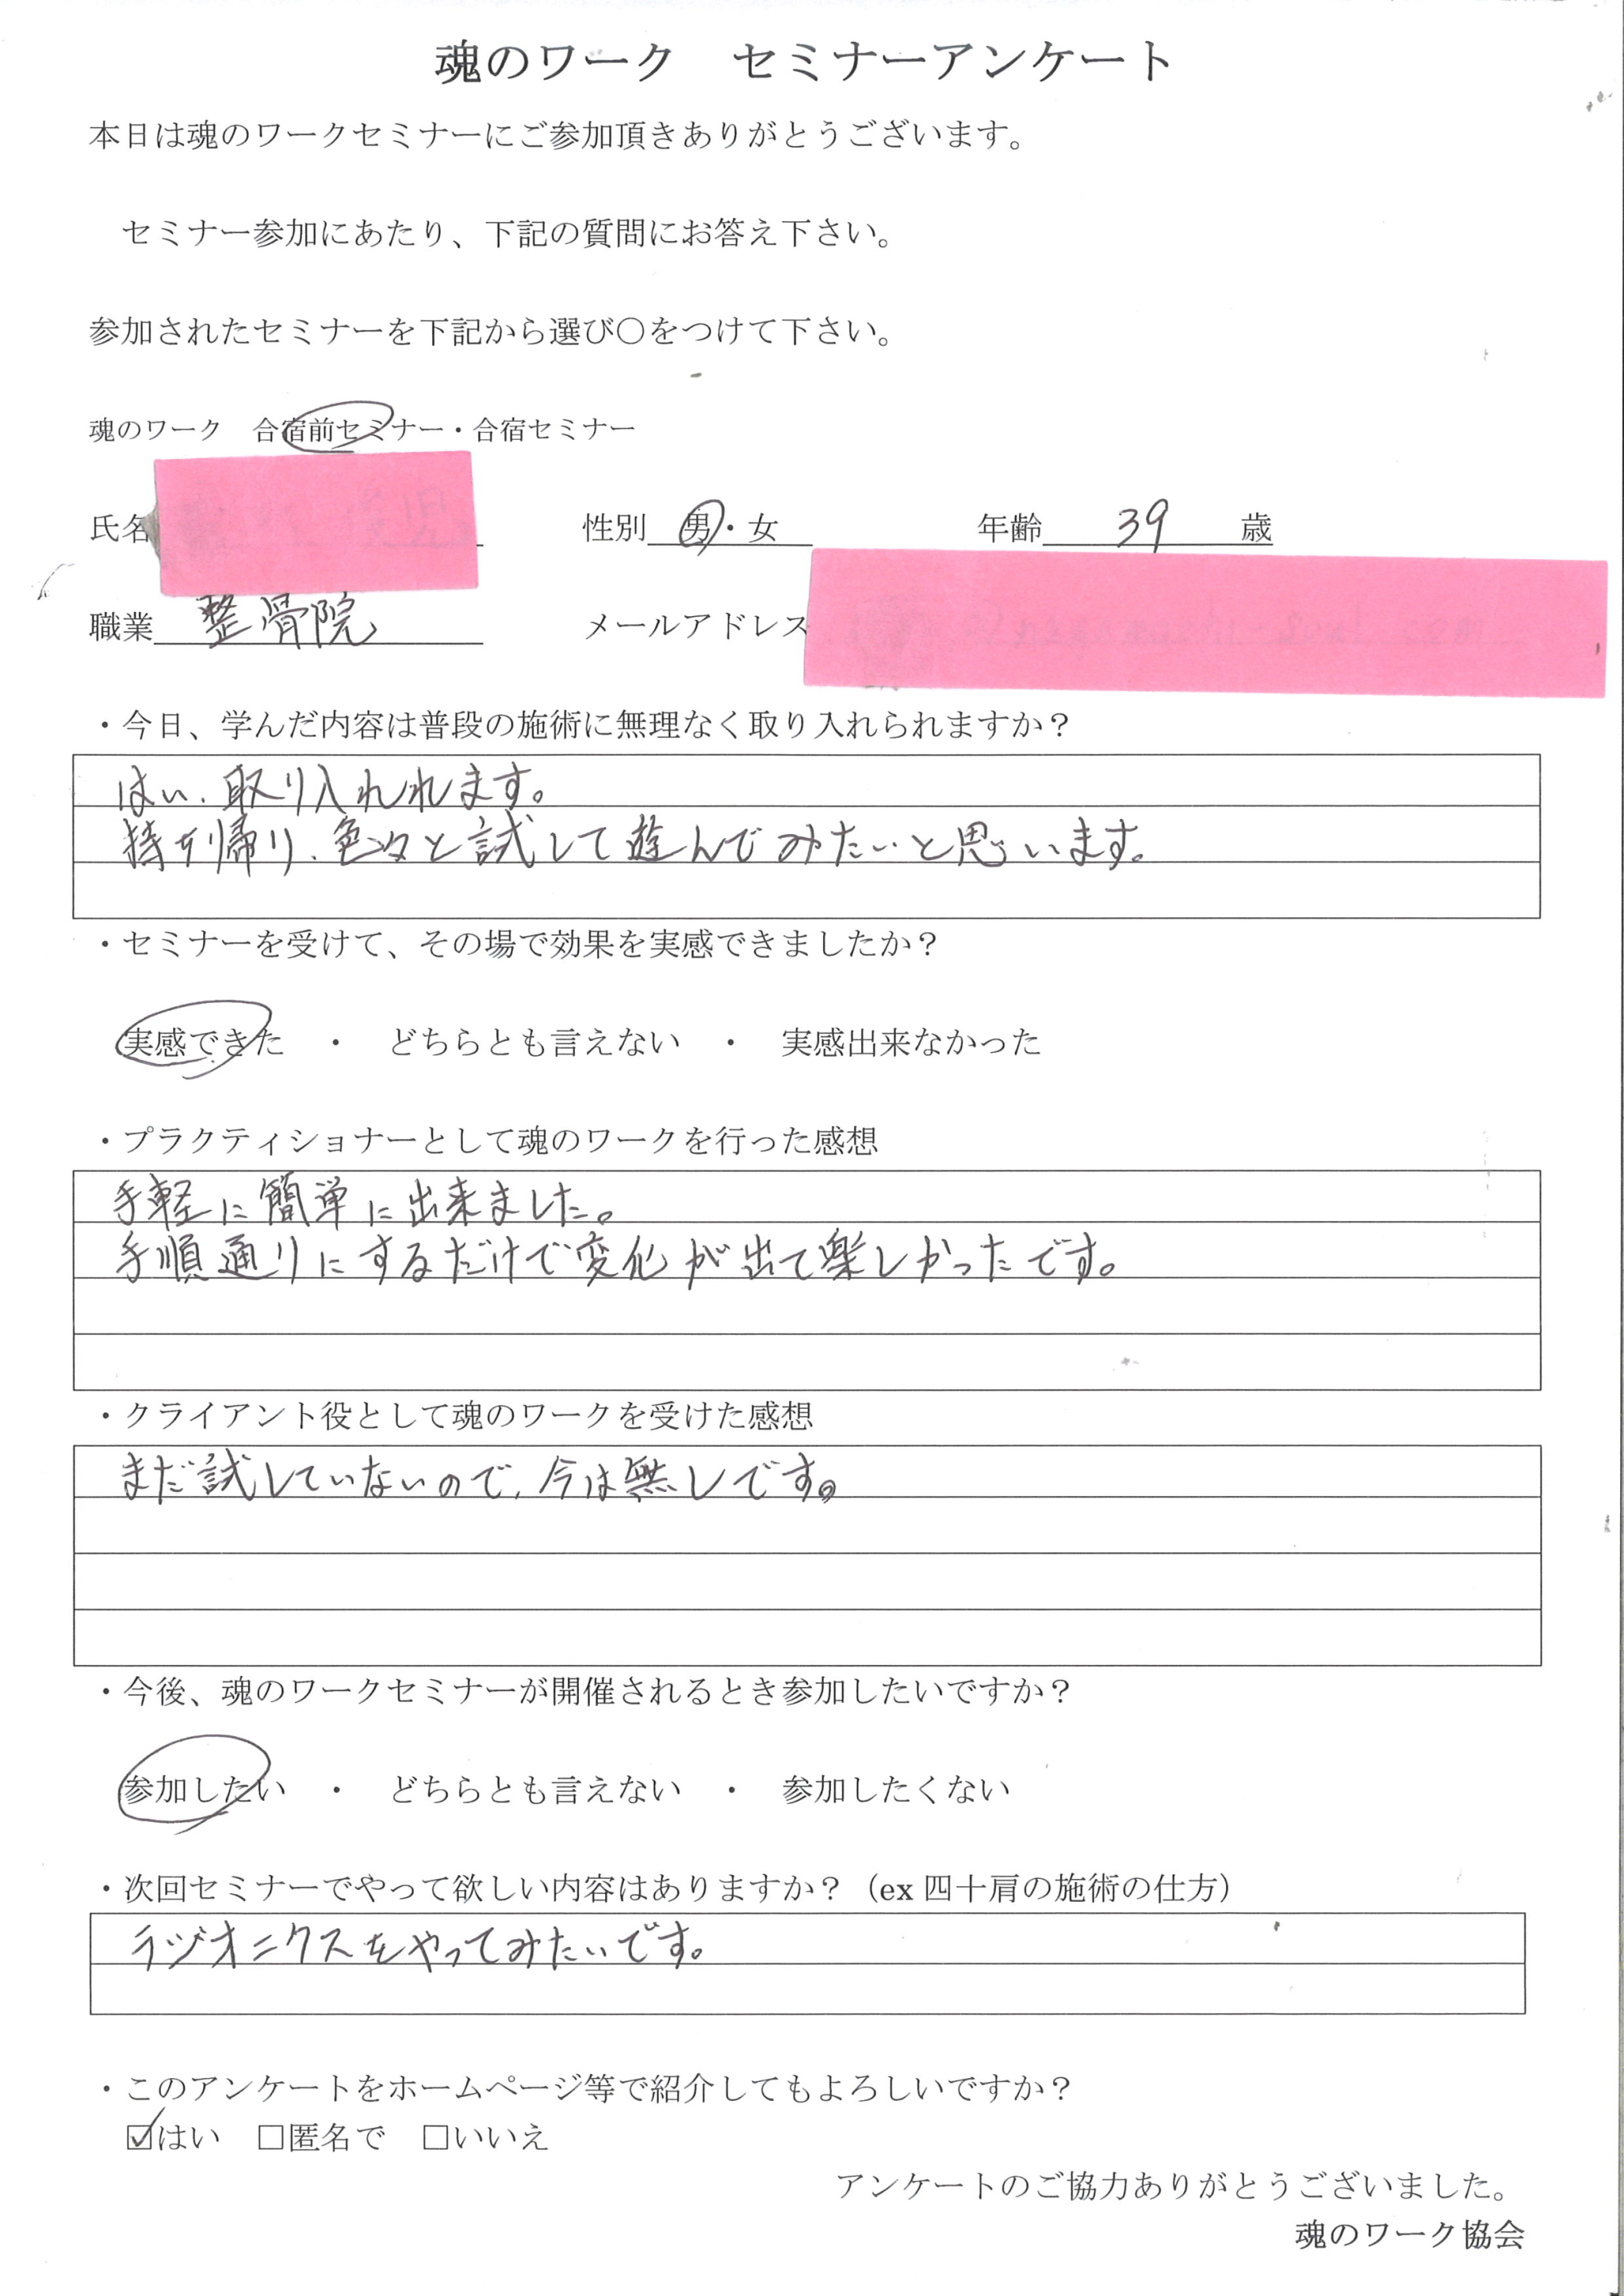 魂のワーク　セミナーアンケート
本日は魂のワークセミナーにご参加頂きありがとうございます。
セミナー参加にあたり、下記の質問にお答え下さい。
参加されたセミナーを下記から選び〇をつけて下さい。
魂のワーク　合宿前セミナー・合宿セミナー
氏名　性別　男・女　年齢　39　歳
職業　整骨院　メールアドレス
・今日、学んだ内容は普段の施術に無理なく取り入れられますか？
はい、取り入れれます。
持ち帰り、色々と試して遊んでみたいと思います。
・セミナーを受けて、その場で効果を実感できましたか？
実感できた　・　どちらとも言えない　・　実感出来なかった
・プラクティショナーとして魂のワークを行った感想
手軽に簡単に出来ました。
手順通りにするだけで変化が出て楽しかったです。
・クライアント役として魂のワークを受けた感想
まだ試していないので、今は無しです。
・今後、魂のワークセミナーが開催されるとき参加したいですか？
参加したい　・　どちらとも言えない　・　参加したくない
・次回セミナーでやって欲しい内容はありますか？（ex 四十肩の施術の仕方）
ラジオニクスをやってみたいです。
・このアンケートをホームページ等で紹介してもよろしいですか？
☑はい　□匿名で　□いいえ
アンケートのご協力ありがとうございました。
魂のワーク協会